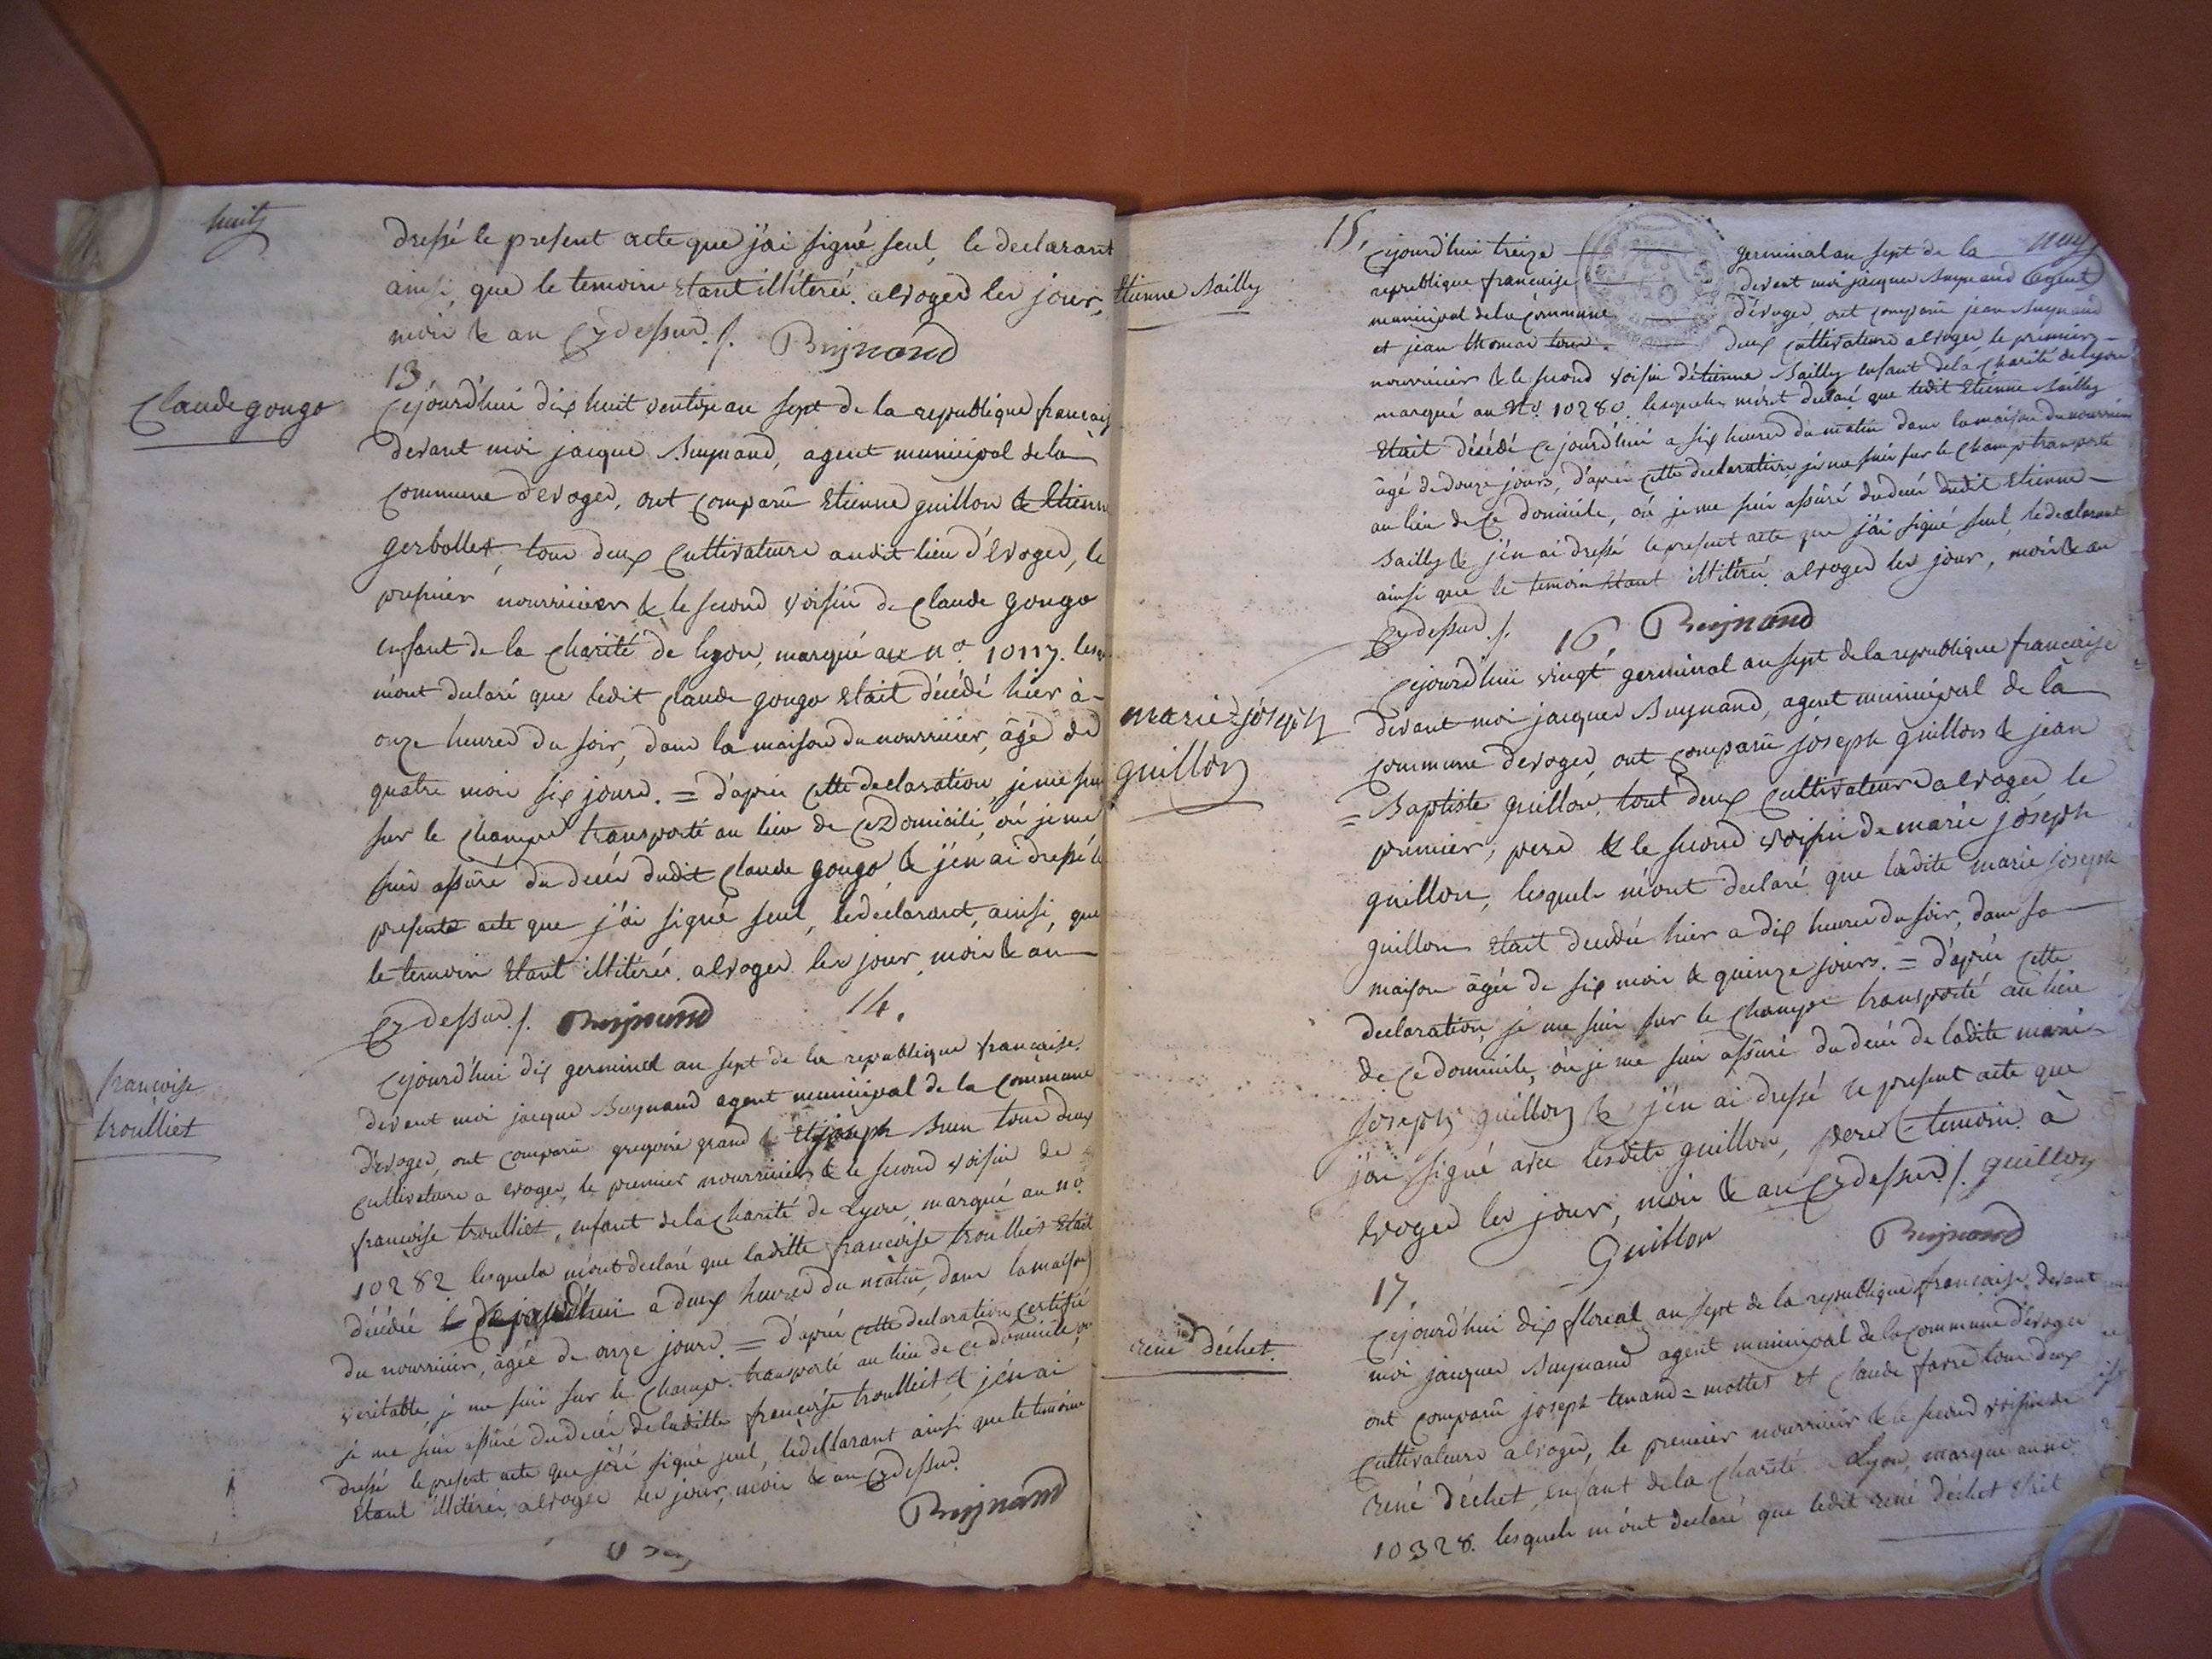 huits
dressé le present acte que j'ai signé seul, le declarant
ainsi, que le temoin etant illiteré. a Evoged les jour,
mois & an cy dessus ./. Buynand
13
Claude gougo
Cejourd'hui dix huit ventose an sept de la republique francais
devant moi jacque Buynand, agent municipal de la
commune d'evoged, ont comparu Etienne guillon & Etienn
gerbollet, tous deux cultivateurs audit lieu d'Evoged, le
premier nourricier & le second voisin de Claude gougo
enfant de la charité de lyon, marqué au n.o 10117. les
m'ont declaré que ledit Claude gougo etait décédé hier à
onze heures du soir, dans la maison du nourricier, âgé de
quatre mois six jours. = d'après cette declaration, je me suis
sur le champ transporté au lieu de ce Domicile, où je me
suis assuré du décès dudit Claude gougo & j'en ai dressé le
present acte que j'ai signé seul, le declarant, ainsi, que
le temoin etant illiteré. a Evoged les jour, mois & an
cy dessus ./. Buynand
14.
francoise
troulliet
Cejourd'hui dix germinal an sept de la republique francaise.
devent moi jacque Buynand agent municipal de la commune
d'evoged, ont comparu gregoire grand & joseph Brun tous deux
cultivateurs a evoged, le premier nourricier & le second voisin de
francoise troulliet, enfant de la charité de Lyon, marqué au n.o
10282 lesquels m'ont declaré que laditte francoise troulliet etait
décédée cejourd'hui a deux heures du matin, dans la maison
du nourricier, âgée de onze jours. = d'après cette declaration certifié
veritable, je me suis sur le champ transporté au lieu de ce domicile, ou
je me suis assuré du décès de laditte francoise troulliet & j'en ai
dressé le present acte que j'ai signé seul, le declarant ainsi que le temoin
etant illiteré, a Evoged les jour, mois & an cy dessus.
Buynand
15.
Etienne Bailly
Cejourd'hui treize germinal an sept de la
republique francaise devent moi jacque Buynand agent
municipal de la commune d'évoged, ont comparu jean Buynand
et jean thomas tous deux cultivateurs a Evoged le premier
nourricier & le second voisin d'étienne Bailly enfant de la charité de lyon
marqué au N.o 10280. lesquels m'ont declaré que ledit Etienne Bailly
etait décédé cejourd'hui a six heures du matin dans la maison du nourricier
âgé de douze jours, d'après cette declaration, je me suis sur le champ transporté
au lieu de ce domicile, où je me suis assuré du décès dudit Etienne
Bailly & j'en ai dressé le present acte que j'ai signé seul, le declarant
ainsi que le temoin etant illiteré a Evoged les jour, mois & an
cy dessus ./. Buynand
16.
marie joseph
guillon
Cejourd'hui vingt germinal an sept de la republique francaise
devant moi jacques Buynand, agent municipal de la
commune d'evoged, ont comparu joseph guillon & jean
= Baptiste guillon, tout deux cultivateurs a Evoged, le
premier, pere & le second voisin de marie joseph
guillon, lesquels m'ont declaré que ladite marie joseph
guillon etait decedée hier a dix heures du soir, dans sa
maison âgée de six mois & quinze jours. = d'après cette
declaration, je me suis sur le champ transporté au lieu
de ce domicile, où je me suis assuré du décès de ladite marie
joseph guillon & j'en ai dressé le present acte que
j'ai signé avec lesdits guillon, pere & temoin. à
Evoged les jour, mois & an cy dessus ./. guillon
Guillon Buynand
17.
rené déchet.
Cejourd'hui dix floreal an sept de la republique francaise, devant
moi jacques Buynand agent municipal de la commune d'évoged
ont comparu joseph tenand = mottet et claude favre tous deux
cultivateurs a Evoged, le premier nourricier & le second voisin de
rené déchet, enfant de la charité Lyon, marque au n.o
10328. lesquels m'ont declaré que ledit rené déchet etait